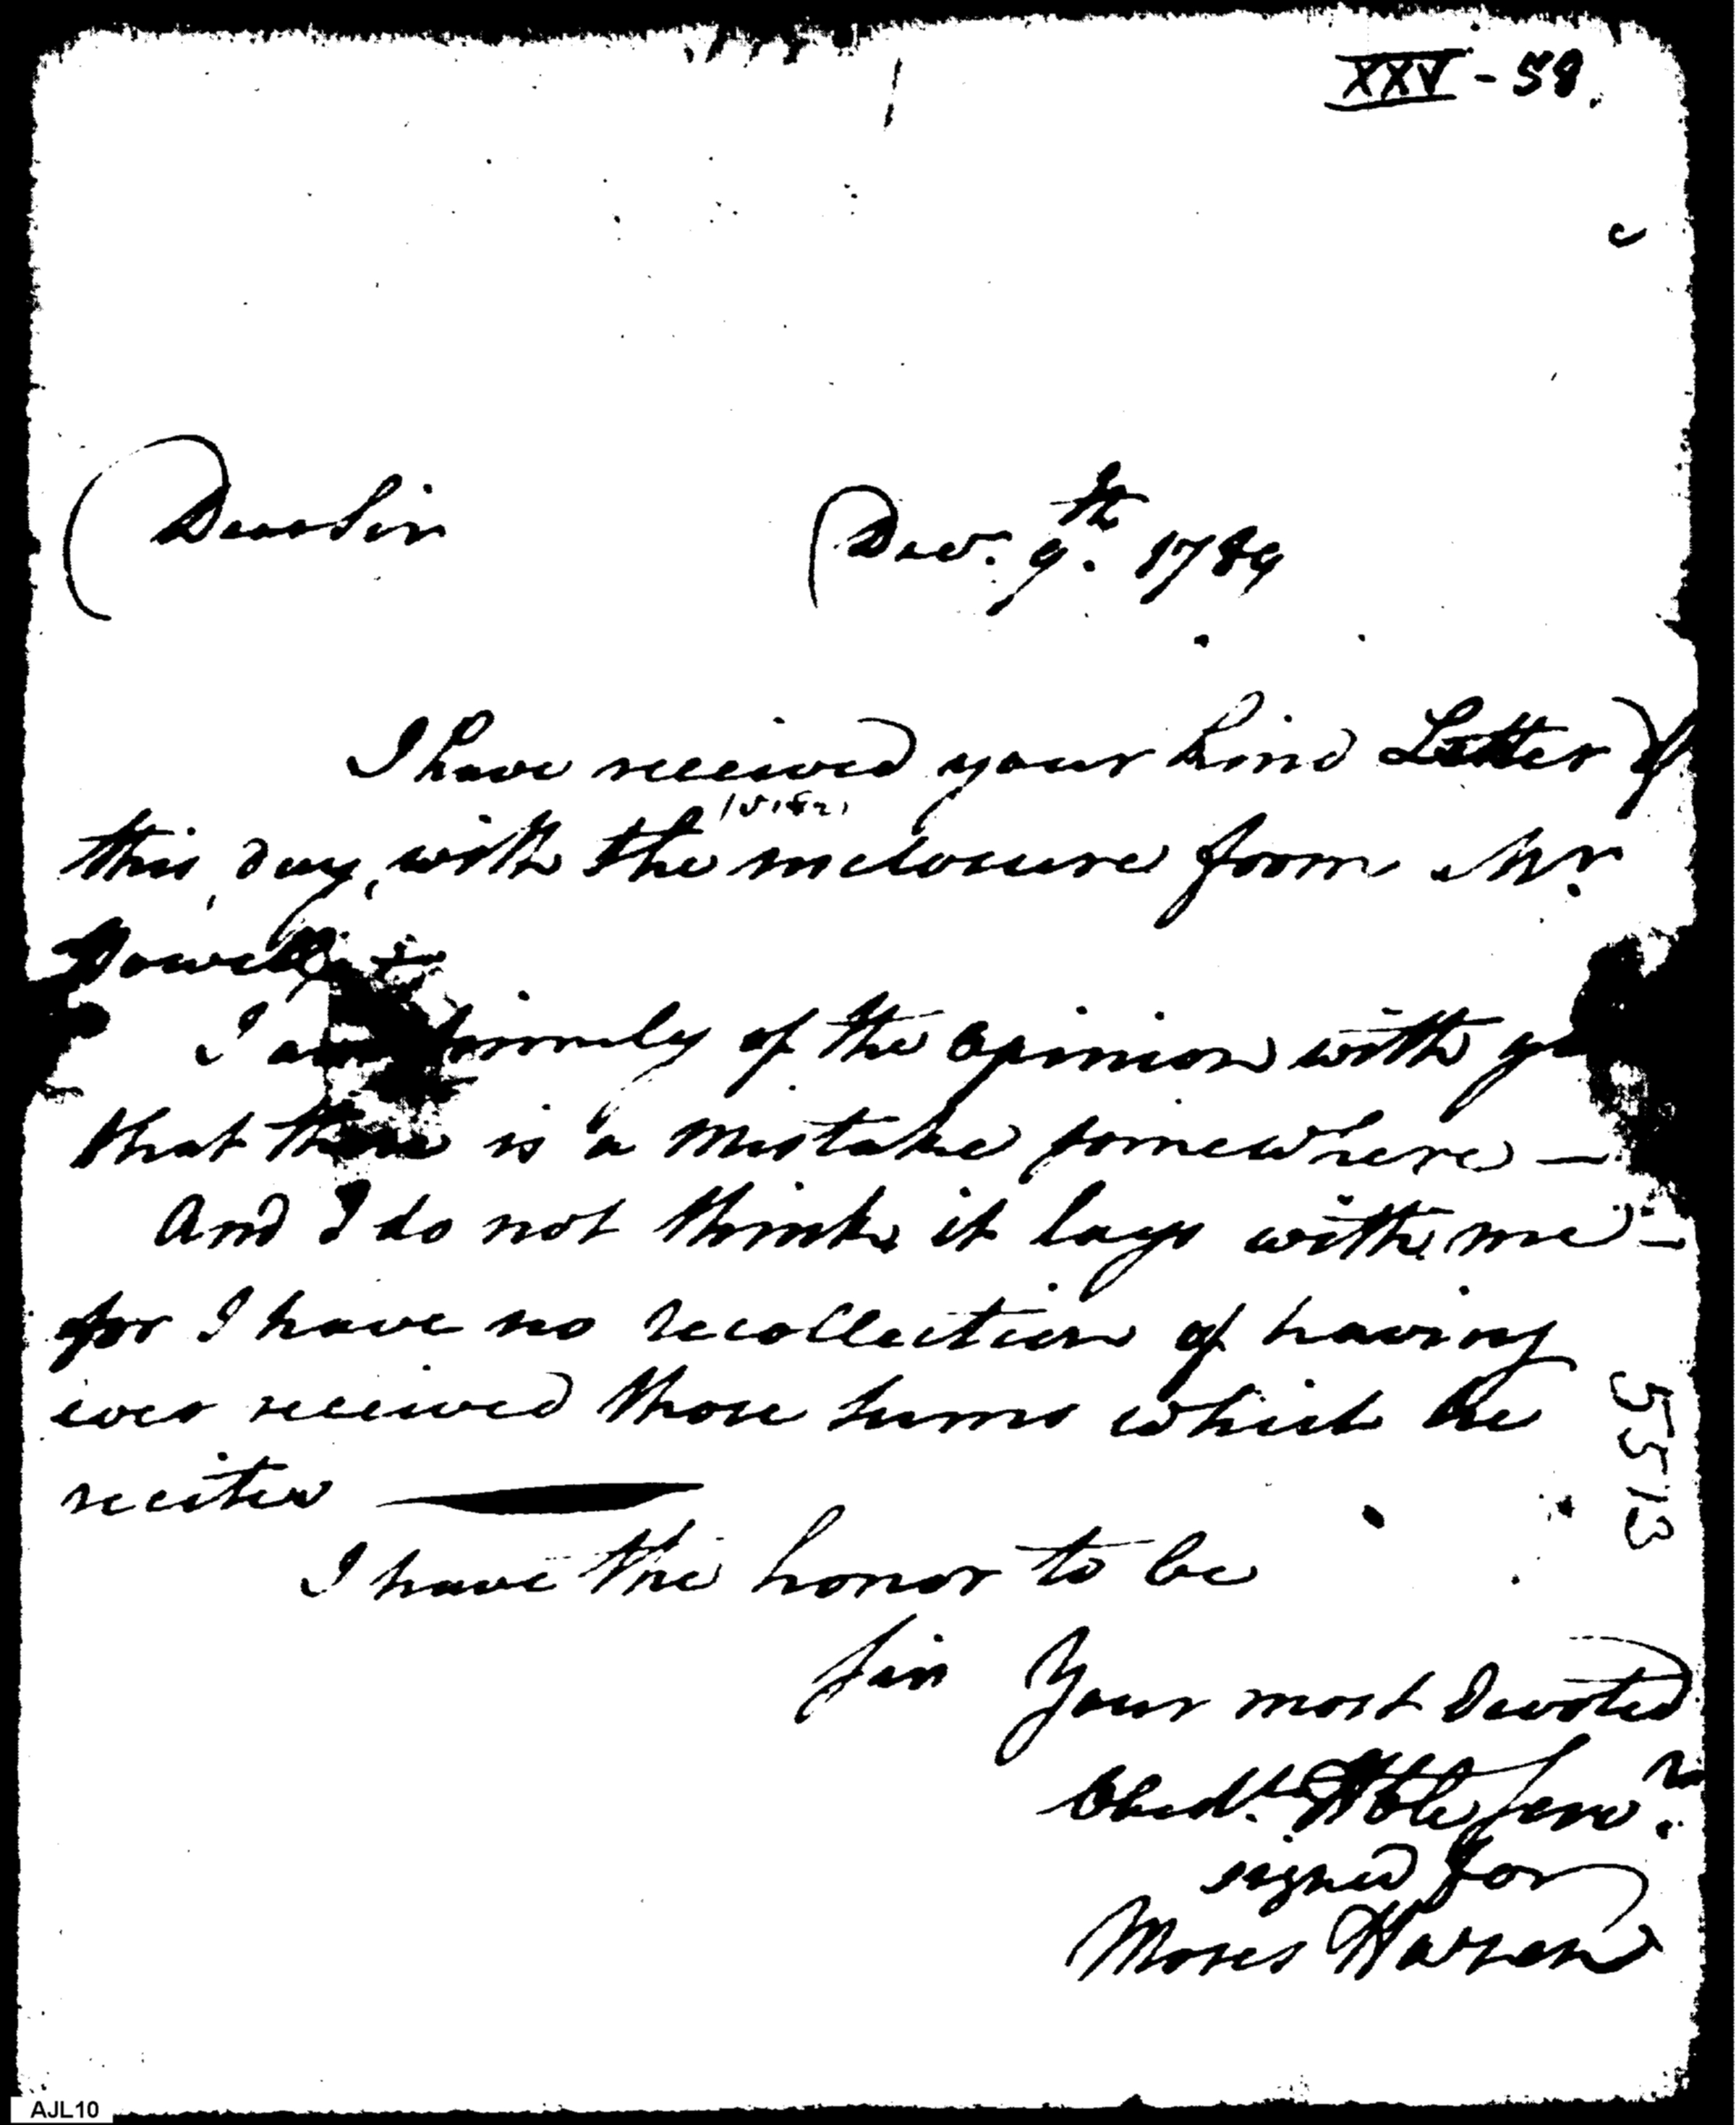 XXV - 58.
Dear Sir
Decr. 9th. 1789
I have received your kind Letter of
this day, with the inclosure from Mr.
Howell
I am firmly of the opinion with
that there is a mistake somewhere —
And I do not think it lays with me —
for I have no recollection of having
ever received those sums which he
recites —
I have the honor to be
Sir Your most devoted
Obedt. Hble Servt.
signed for
Moses Hazen
5513
AJL10